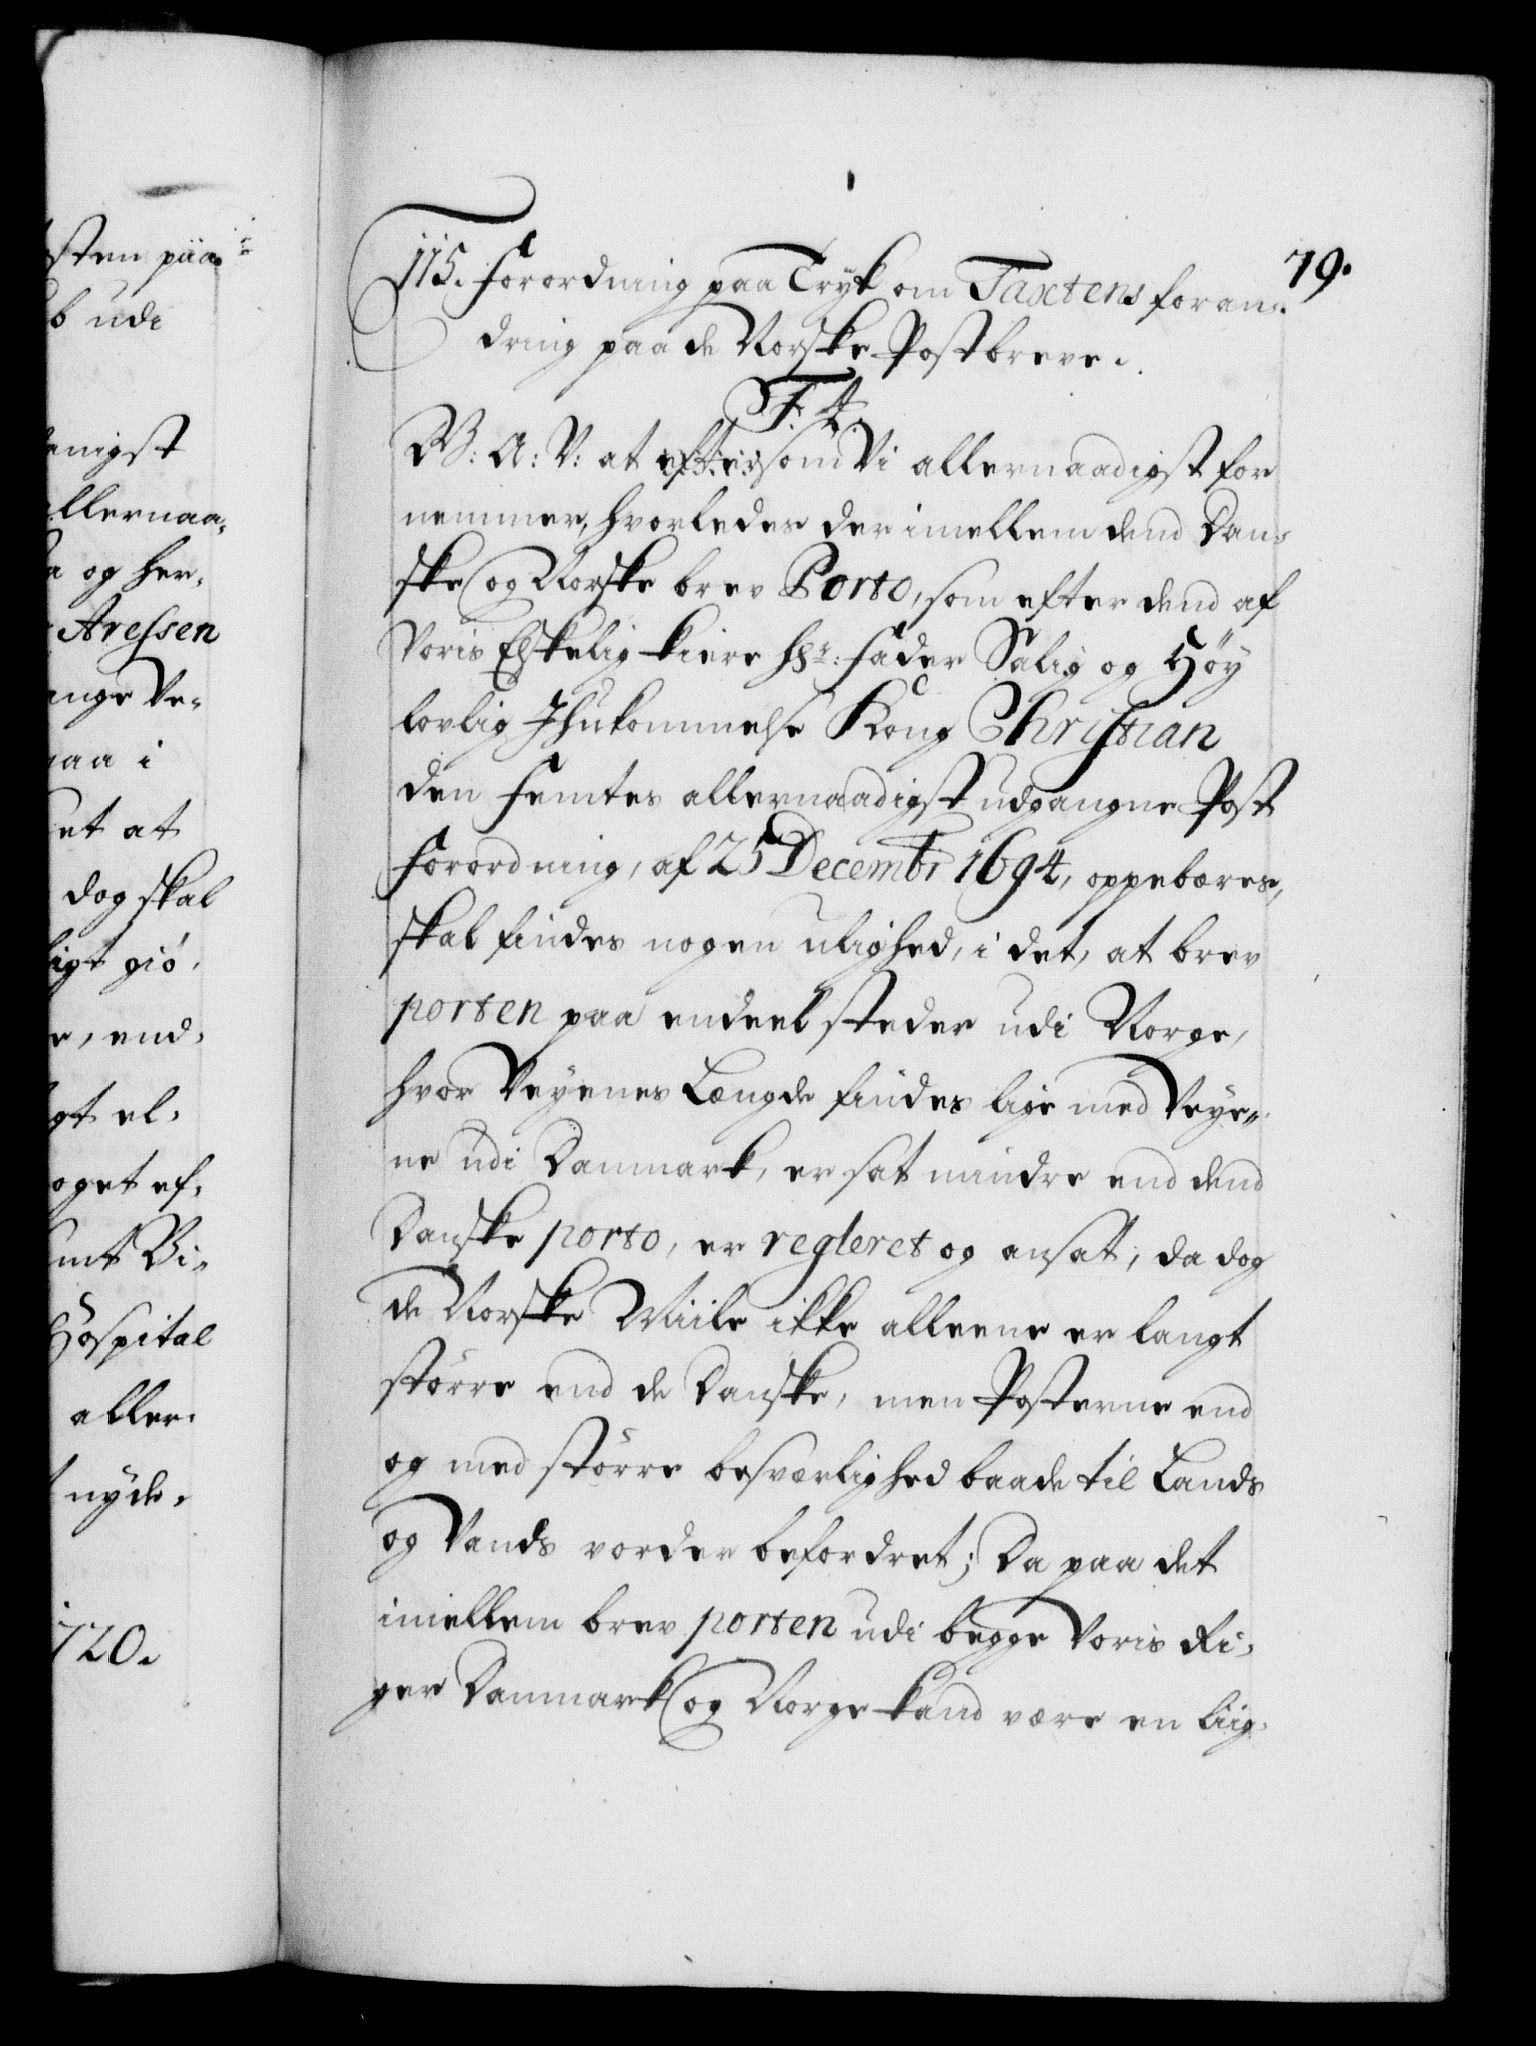 sten paa
b udi
anigst
allernaa¬
a og her¬
Aressen
ange Ve¬
aa i
et at
dog skal
ligt giö¬
r, end¬
gt el¬
oget ef¬
mt Bi¬
Hospital
aller¬
nyde.
1720.
79.
115. Forordning paa Tryk om Taxtens foran¬
dring paa de Norske Postbreve.
F. 4.
W: A: V: at eftersom Vi allernaadigst for
nemmer, hvorledes der imellem dend Dan¬
ske og Norske brev Porto, som efter dend af
Voris Elskelig kiere Hr: Fader Salig og Höy
lovlig Ihukommelse Kong Christian
den Femtes allernaadigst udgangne Post
Forordning, af 25 Decembr 1694, oppebæres,
skal findes nogen ulighed, i det, at brev
porten paa endeel steder udi Norge,
hvor Veyenes Længde findes lige med Veye¬
ne udi Danmark, er sat mindre end dend
Danske porto, er regleret og ansat, da dog
de Norske Miile ikke alleene er langt
större end de Danske, men Posterne end
og med större besværlighed baade til Lands
og Vands vorder befordret; Da paa det
imellem brev porten udi begge Voris Ri¬
ger Danmark og Norge kand være en liig¬